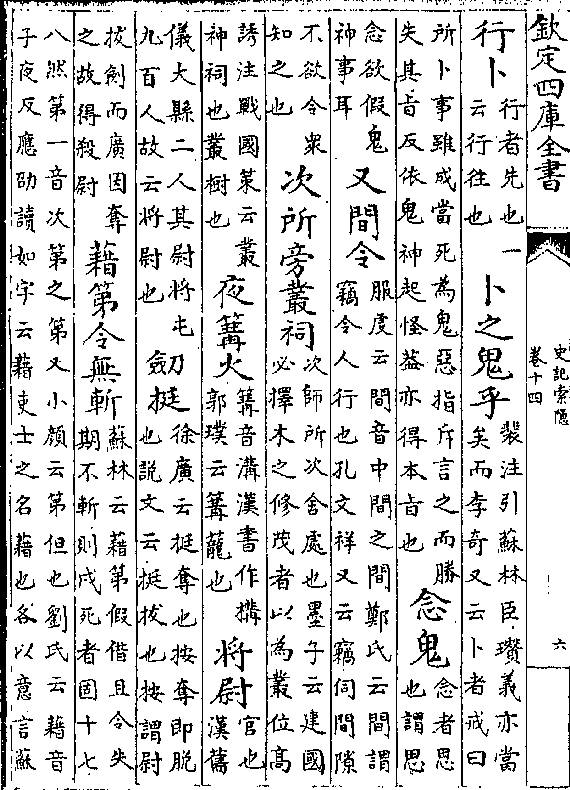 欽定四庫全書
史記索隱
卷十四
六
行卜
行者先也一
云行往也
卜之鬼乎
裴注引蘇林臣瓚義亦當
矣而李奇又云卜者戒曰
所卜事雖成當死為鬼惡指斥言之而勝
失其㫖反依鬼神起怪葢亦得本㫖也
念鬼
念者思
也謂思
念欲假鬼
神事耳
又間令
服虔云間音中間之間鄭氏云間謂
竊令人行也孔文祥又云竊伺間隙
不欲令衆
知之也
次所旁叢祠
次師所次舍處也墨子云建國
必擇木之修茂者以為叢位髙
誘注戰國策云叢
神祠也叢樹也
夜篝火
篝音溝漢書作搆
郭璞云篝籠也
将尉
官也
漢舊
儀大縣二人其尉将屯
九百人故云将尉也
劒挺
徐廣云挺奪也按奪即脱
也説文云挺拔也按謂尉
拔劍而廣因奪
之故得殺尉
藉第令無斬
蘇林云藉第假借且令失
期不斬則戍死者固十七
八然第一音次第之第又小顔云第但也劉氏云藉音
子夜反應劭讀如字云藉吏士之名藉也各以意言蘇